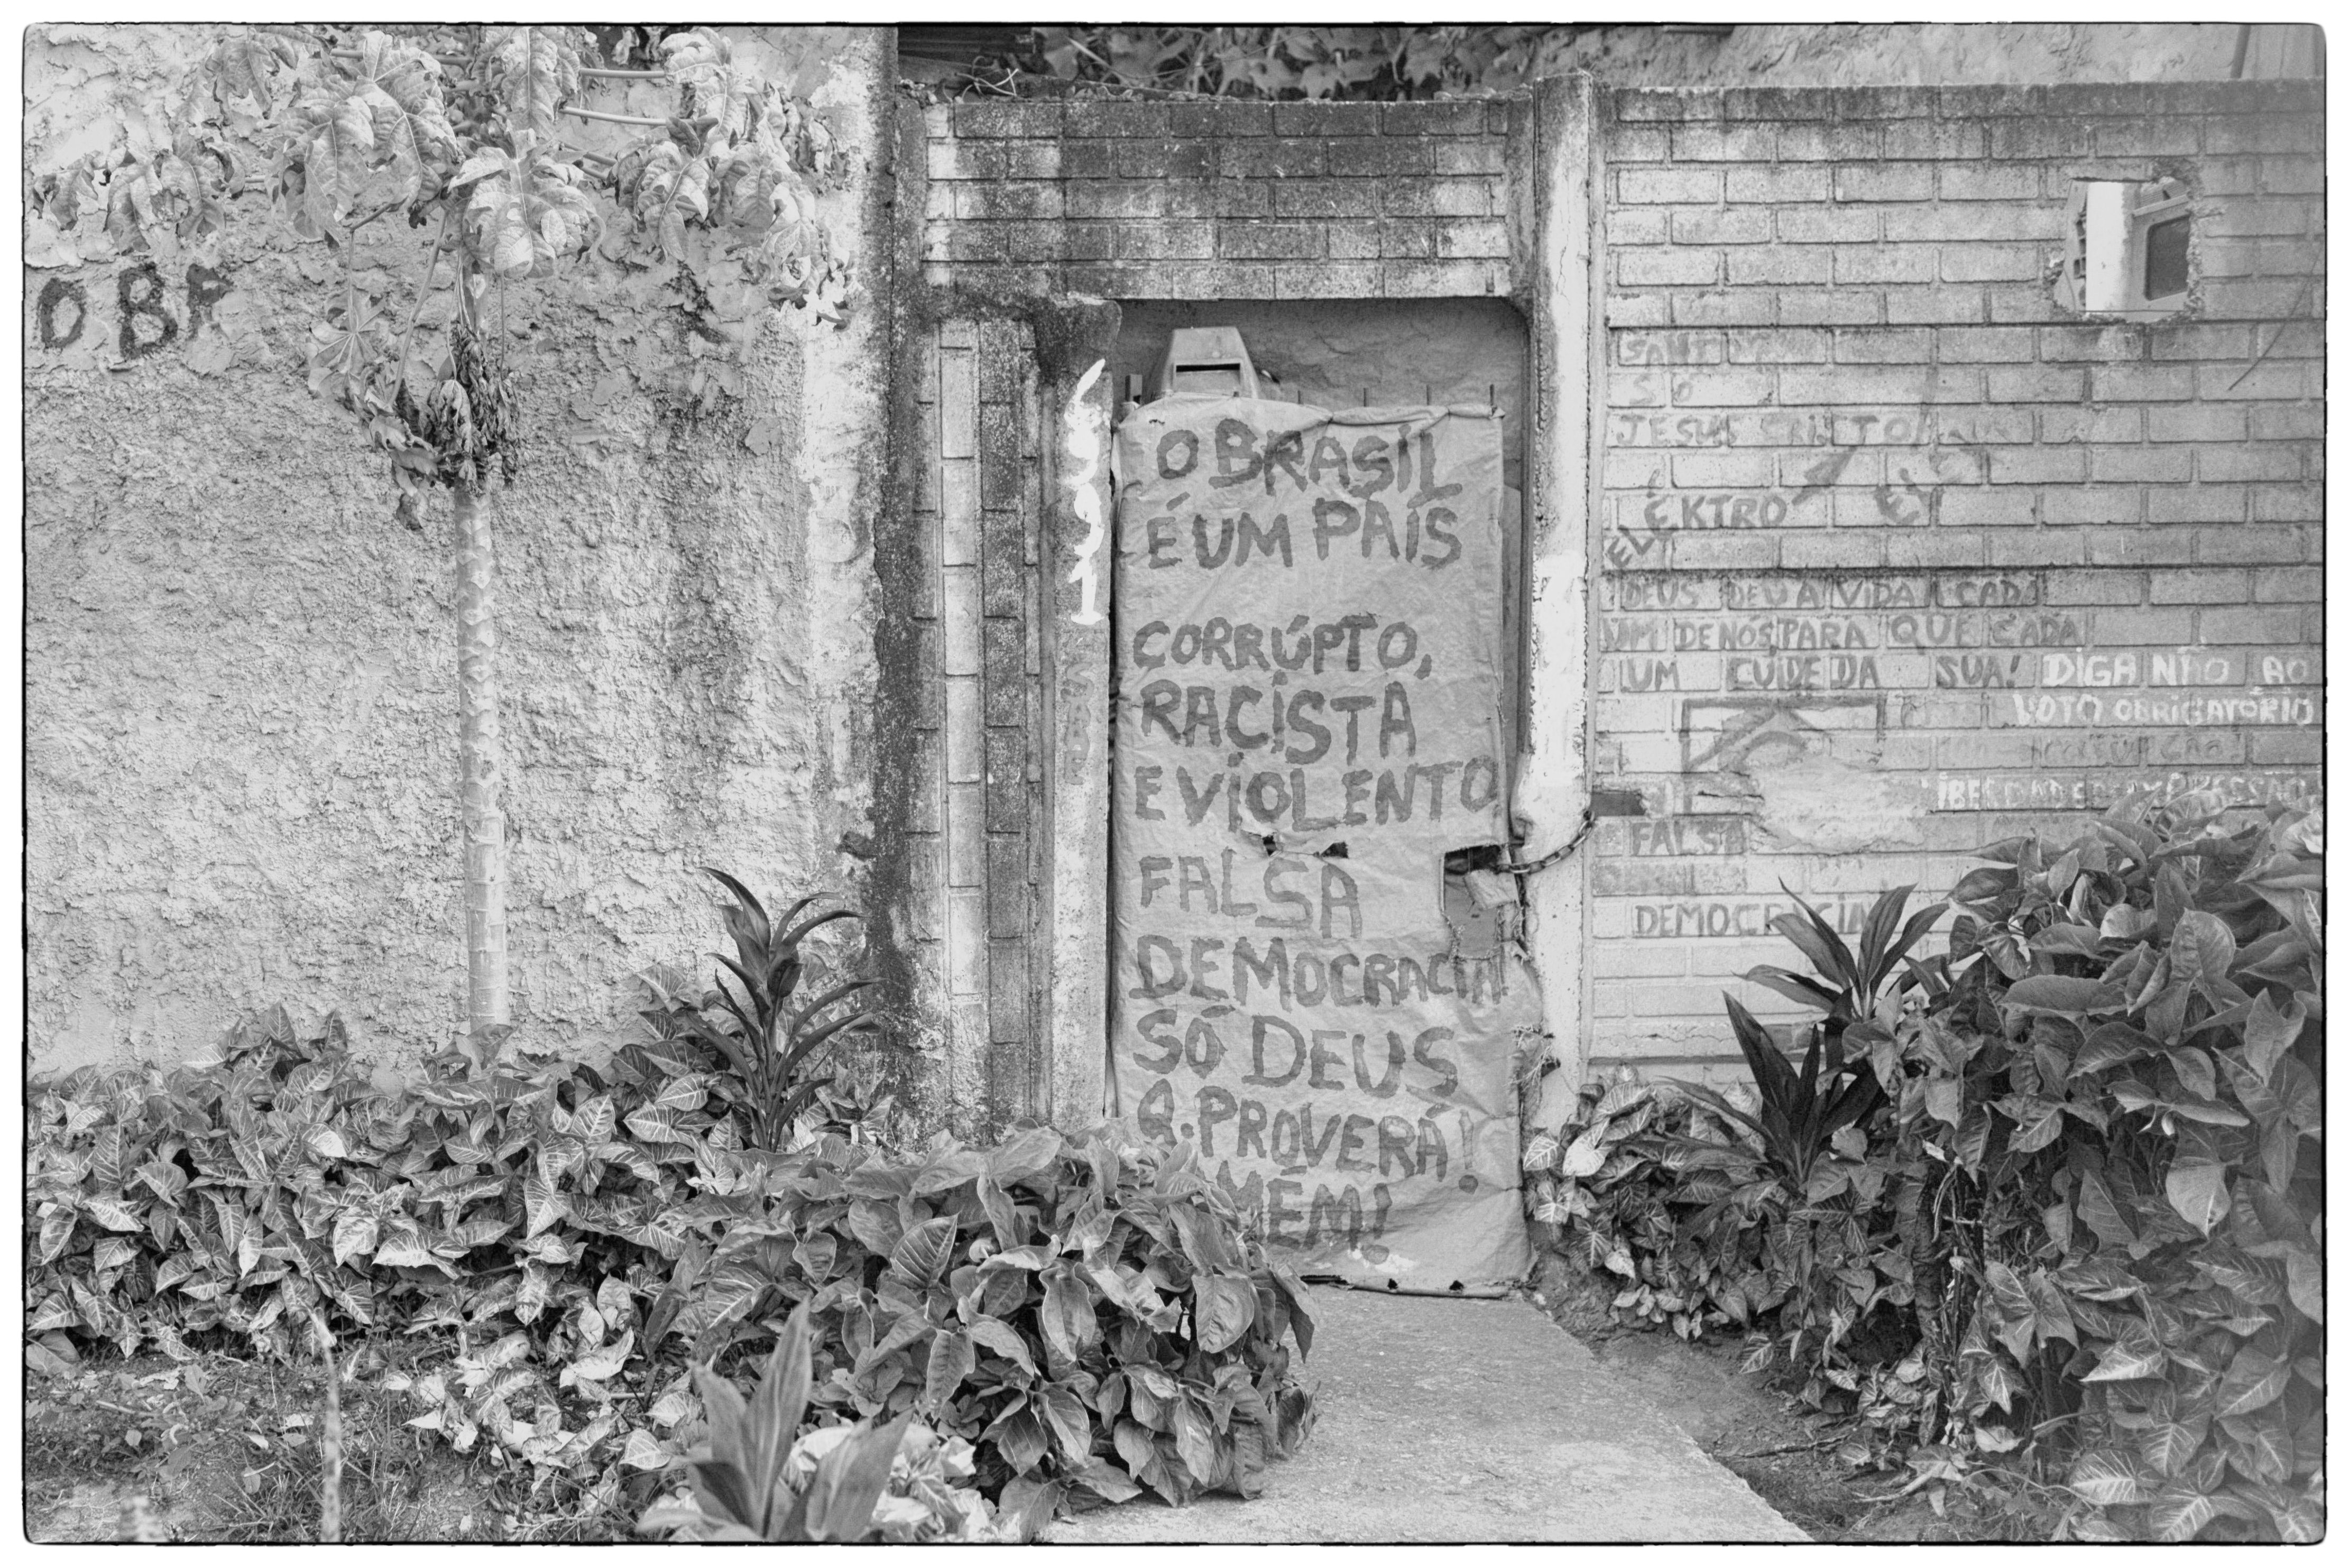 O BR
1661
O BRASIL
É UM PAÍS
CORRÚPTO,
RACISTA
E VIOLENTO
FALSA
DEMOCRACIA
SÓ DEUS
PROVERÁ!
MÉM!
SÓ
JESUS CRISTO
ELÉKTRO
DEUS DEU A VIDA A CADA
UM DE NÓS PARA QUE CADA
UM CUIDE DA SUA! DIGA NÃO AO
VOTO OBRIGATÓRIO
LIBERDADE DE EXPRESSÃO
FALSA
DEMOCRACIA